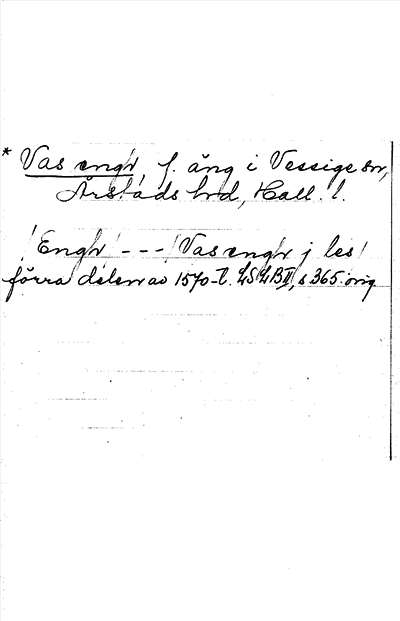 * Vas engh, f. äng i Vessige sn,
Årstads hrd, Hall. l.
/Engh/ --- /Vas engh j les/
förra delen av 1570-t. LSLB II, s 365. orig.